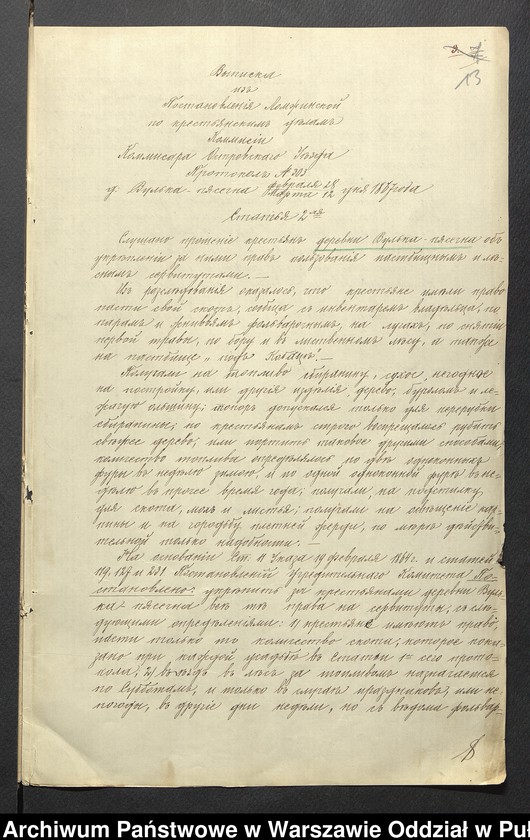 13
Выписка
изъ
Постановленія Ломжинской
по крестьянскимъ дѣламъ
Коммисіи
Коммисара Островскаго Уѣзда
Протоколъ № 305
д. Вулька-пясечна Февраля 28 Марта 12 дня 1867 года
Статья 2ая
Слушано прошеніе крестьянъ деревни Вулька-пясечна объ
укрѣпленіи за ними правъ пользованія пастбищнымъ и лѣ-
снымъ сервитутами. —
Изъ разслѣдованія оказалось, что крестьяне имѣли право
пасти свой скотъ, сообща съ инвентаремъ владѣльца, по
парамъ и жнивьямъ фольварочнымъ, на лугахъ, по снятіи
первой травы, по бору и въ лиственномъ лѣсу, а также
на пастбище „подъ
Получали на топливо сбиранину, сухое, негодное
на постройку, или другія издѣлія, дерево; буреломъ и ле-
жачую ольшину; топоръ допускался только для перерубки
сбиранины; но крестьянамъ строго воспрещалось рубить
свѣжее дерево, или портить таковое другими способами;
количество топлива опредѣлялось по двѣ одноконныхъ
фуры въ недѣлю зимою, и по одной одноконной фурѣ въ не-
дѣлю въ прочее время года; получали, на подстилку,
для скота, мохъ и листья; получали на освѣщеніе
и на городьбу плетней жерди, по мѣрѣ дѣйстви-
тельной только надобности. —
На основаніи Ст. 11 Указа 19 февраля 1864 г. и статей
119, 129 и 231 Постановленій Учредительнаго Комитета По-
становлено: укрѣпить за крестьянами деревни Вуль-
ка-пясечна всѣ тѣ права на сервитуты, съ слѣ-
дующими опредѣленіями: 1) крестьяне имѣютъ право,
пасти только то количество скота, которое пока-
зано при каждой усадьбѣ въ статьи 1ой сего прото-
кола; 2) въѣздъ въ лѣсъ за топливомъ назначается
по Субботамъ, и только въ случаѣ праздниковъ, или не-
погоды, въ другіе дни недѣли, но съ вѣдома фольвар-
Archiwum Państwowe w Warszawie Oddział w Pu